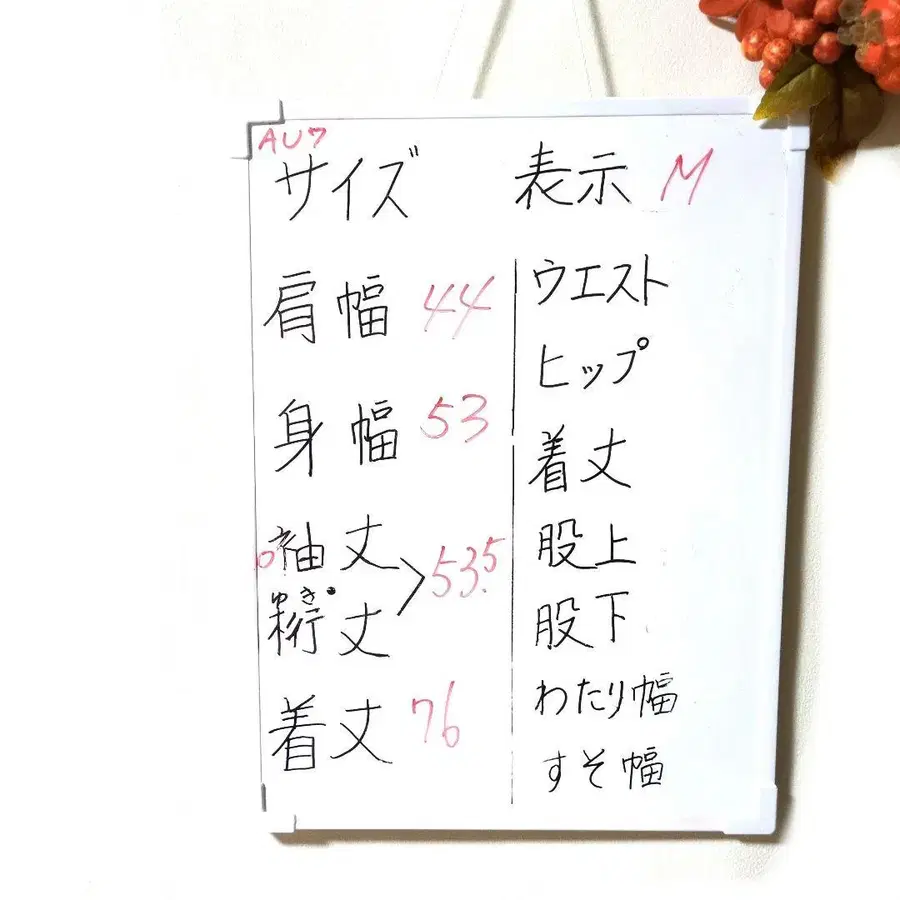 AUワ
サイズ 表示 M
肩幅 44
身幅 53
袖丈 53.5
ゆき
裄丈
着丈 76
ウエスト
ヒップ
着丈
股上
股下
わたり幅
すそ幅